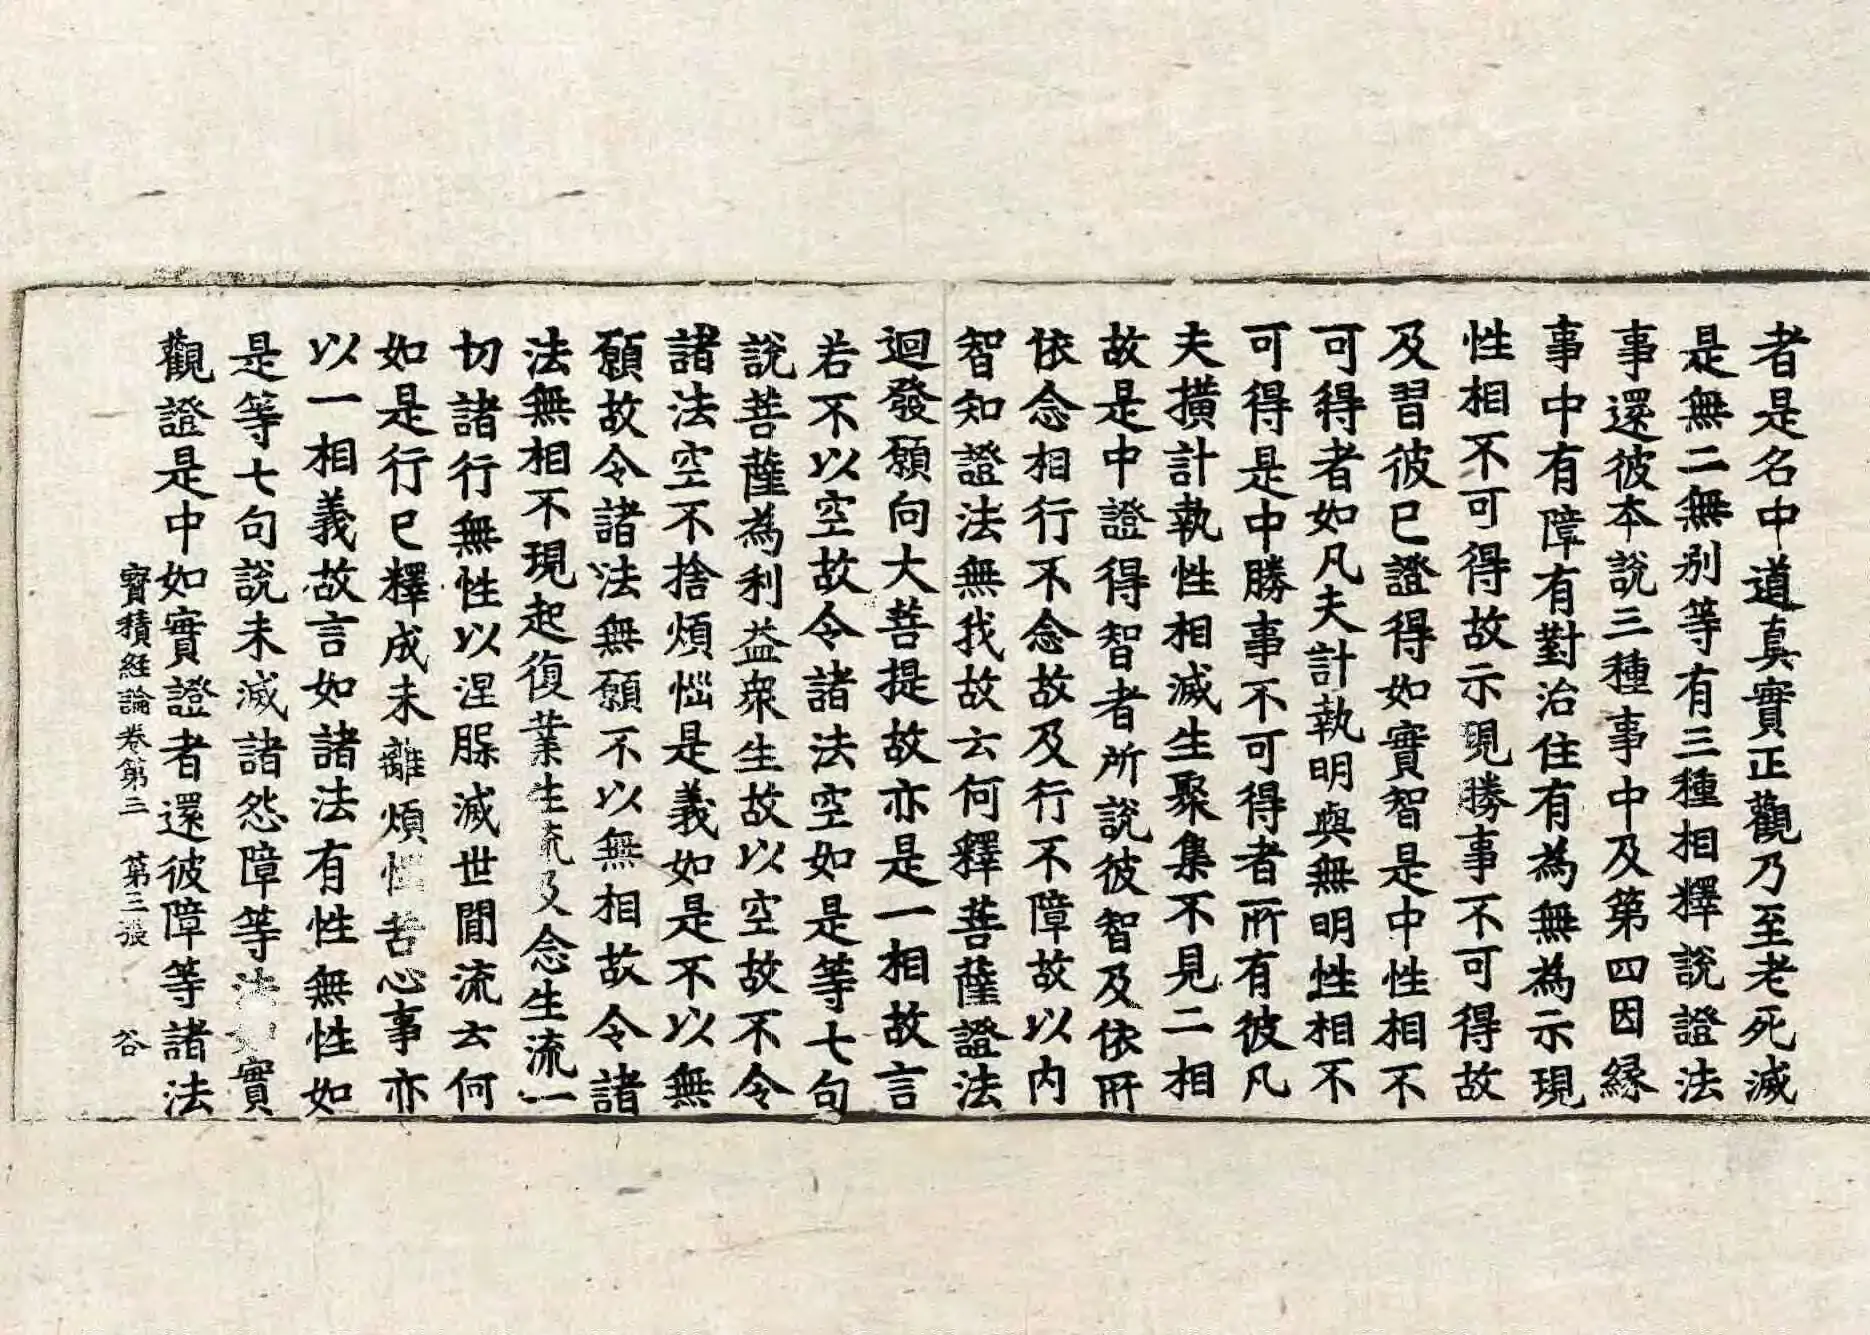 者是名中道真實正觀乃至老死滅
是無二無別等有三種相釋說證法
事還彼本說三種事中及第四因緣
事中有障有對治住有為無為示現
性相不可得故示現勝事不可得故
及習彼已證得如實智是中性相不
可得者如凡夫計執明與無明性相不
可得是中勝事不可得者所有彼凡
夫撗計執性相滅生聚集不見二相
故是中證得智者所說彼智及依所
依念相行不念故及行不障故以內
智知證法無我故云何釋菩薩證法
迴發願向大菩提故亦是一相故言
若不以空故令諸法空如是等七句
說菩薩為利益眾生故以空故不令
諸法空不捨煩惱是義如是不以無
願故令諸法無願不以無相故令諸
法無相不現起復業生流及念生流一
切諸行無性以涅槃滅世間流云何
如是行已釋成未離煩惱苦心事亦
以一相義故言如諸法有性無性如
是等七句說未滅諸怨障等法如實
觀證是中如實證者還彼障等諸法
寶積経論卷第三　第三張　谷